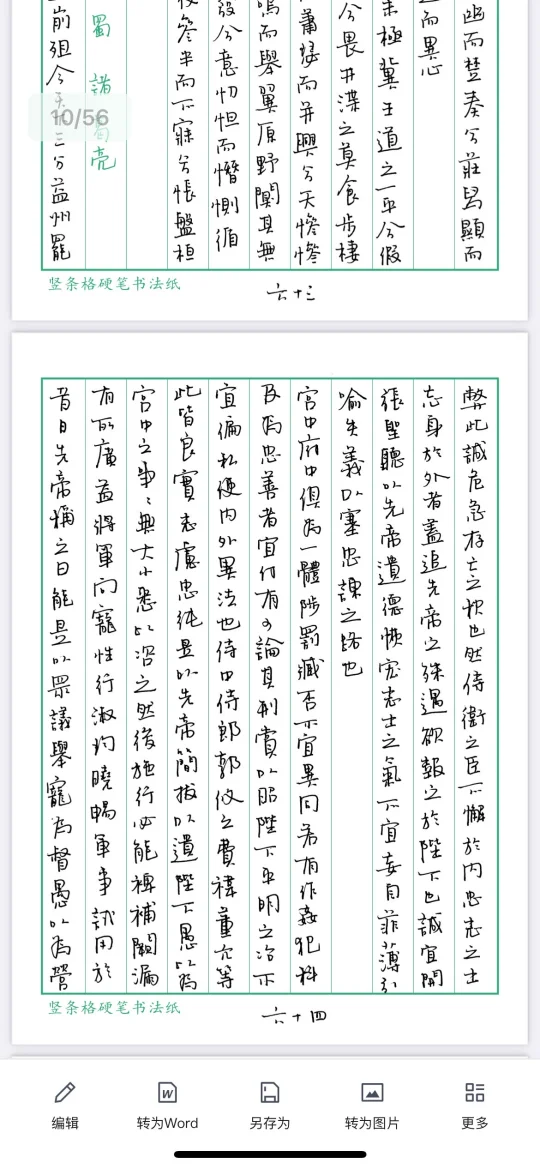 幽而楚奏兮莊舄顯而
而異心
未極冀王道之一平兮假
兮畏井渫之莫食步棲
蕭瑟而并興兮天慘慘
鳴而舉翼原野闃其無
發兮意忉怛而憯惻循
夜參半而不寐兮悵盤桓
蜀 諸葛亮
崩殂今天下三分益州罷
10/56
竖条格硬笔书法纸
六十三
弊此誠危急存亡之秋也然侍衛之臣不懈於內忠志之士
忘身於外者蓋追先帝之殊遇欲報之於陛下也誠宜開
張聖聽以先帝遺德恢宏志士之氣不宜妄自菲薄引
喻失義以塞忠諫之路也
宮中府中俱為一體陟罰臧否不宜異同若有作姦犯科
及為忠善者宜付有司論其刑賞以昭陛下平明之治不
宜偏私使內外異法也侍中侍郎郭攸之費禕董允等
此皆良實志慮忠純是以先帝簡拔以遺陛下愚以為
宮中之事々無大小悉以咨之然後施行必能裨補闕漏
有所廣益將軍向寵性行淑均曉暢軍事試用於
昔日先帝稱之曰能是以眾議舉寵為督愚以為營
竖条格硬笔书法纸
六十四
编辑
转为Word
另存为
转为图片
更多